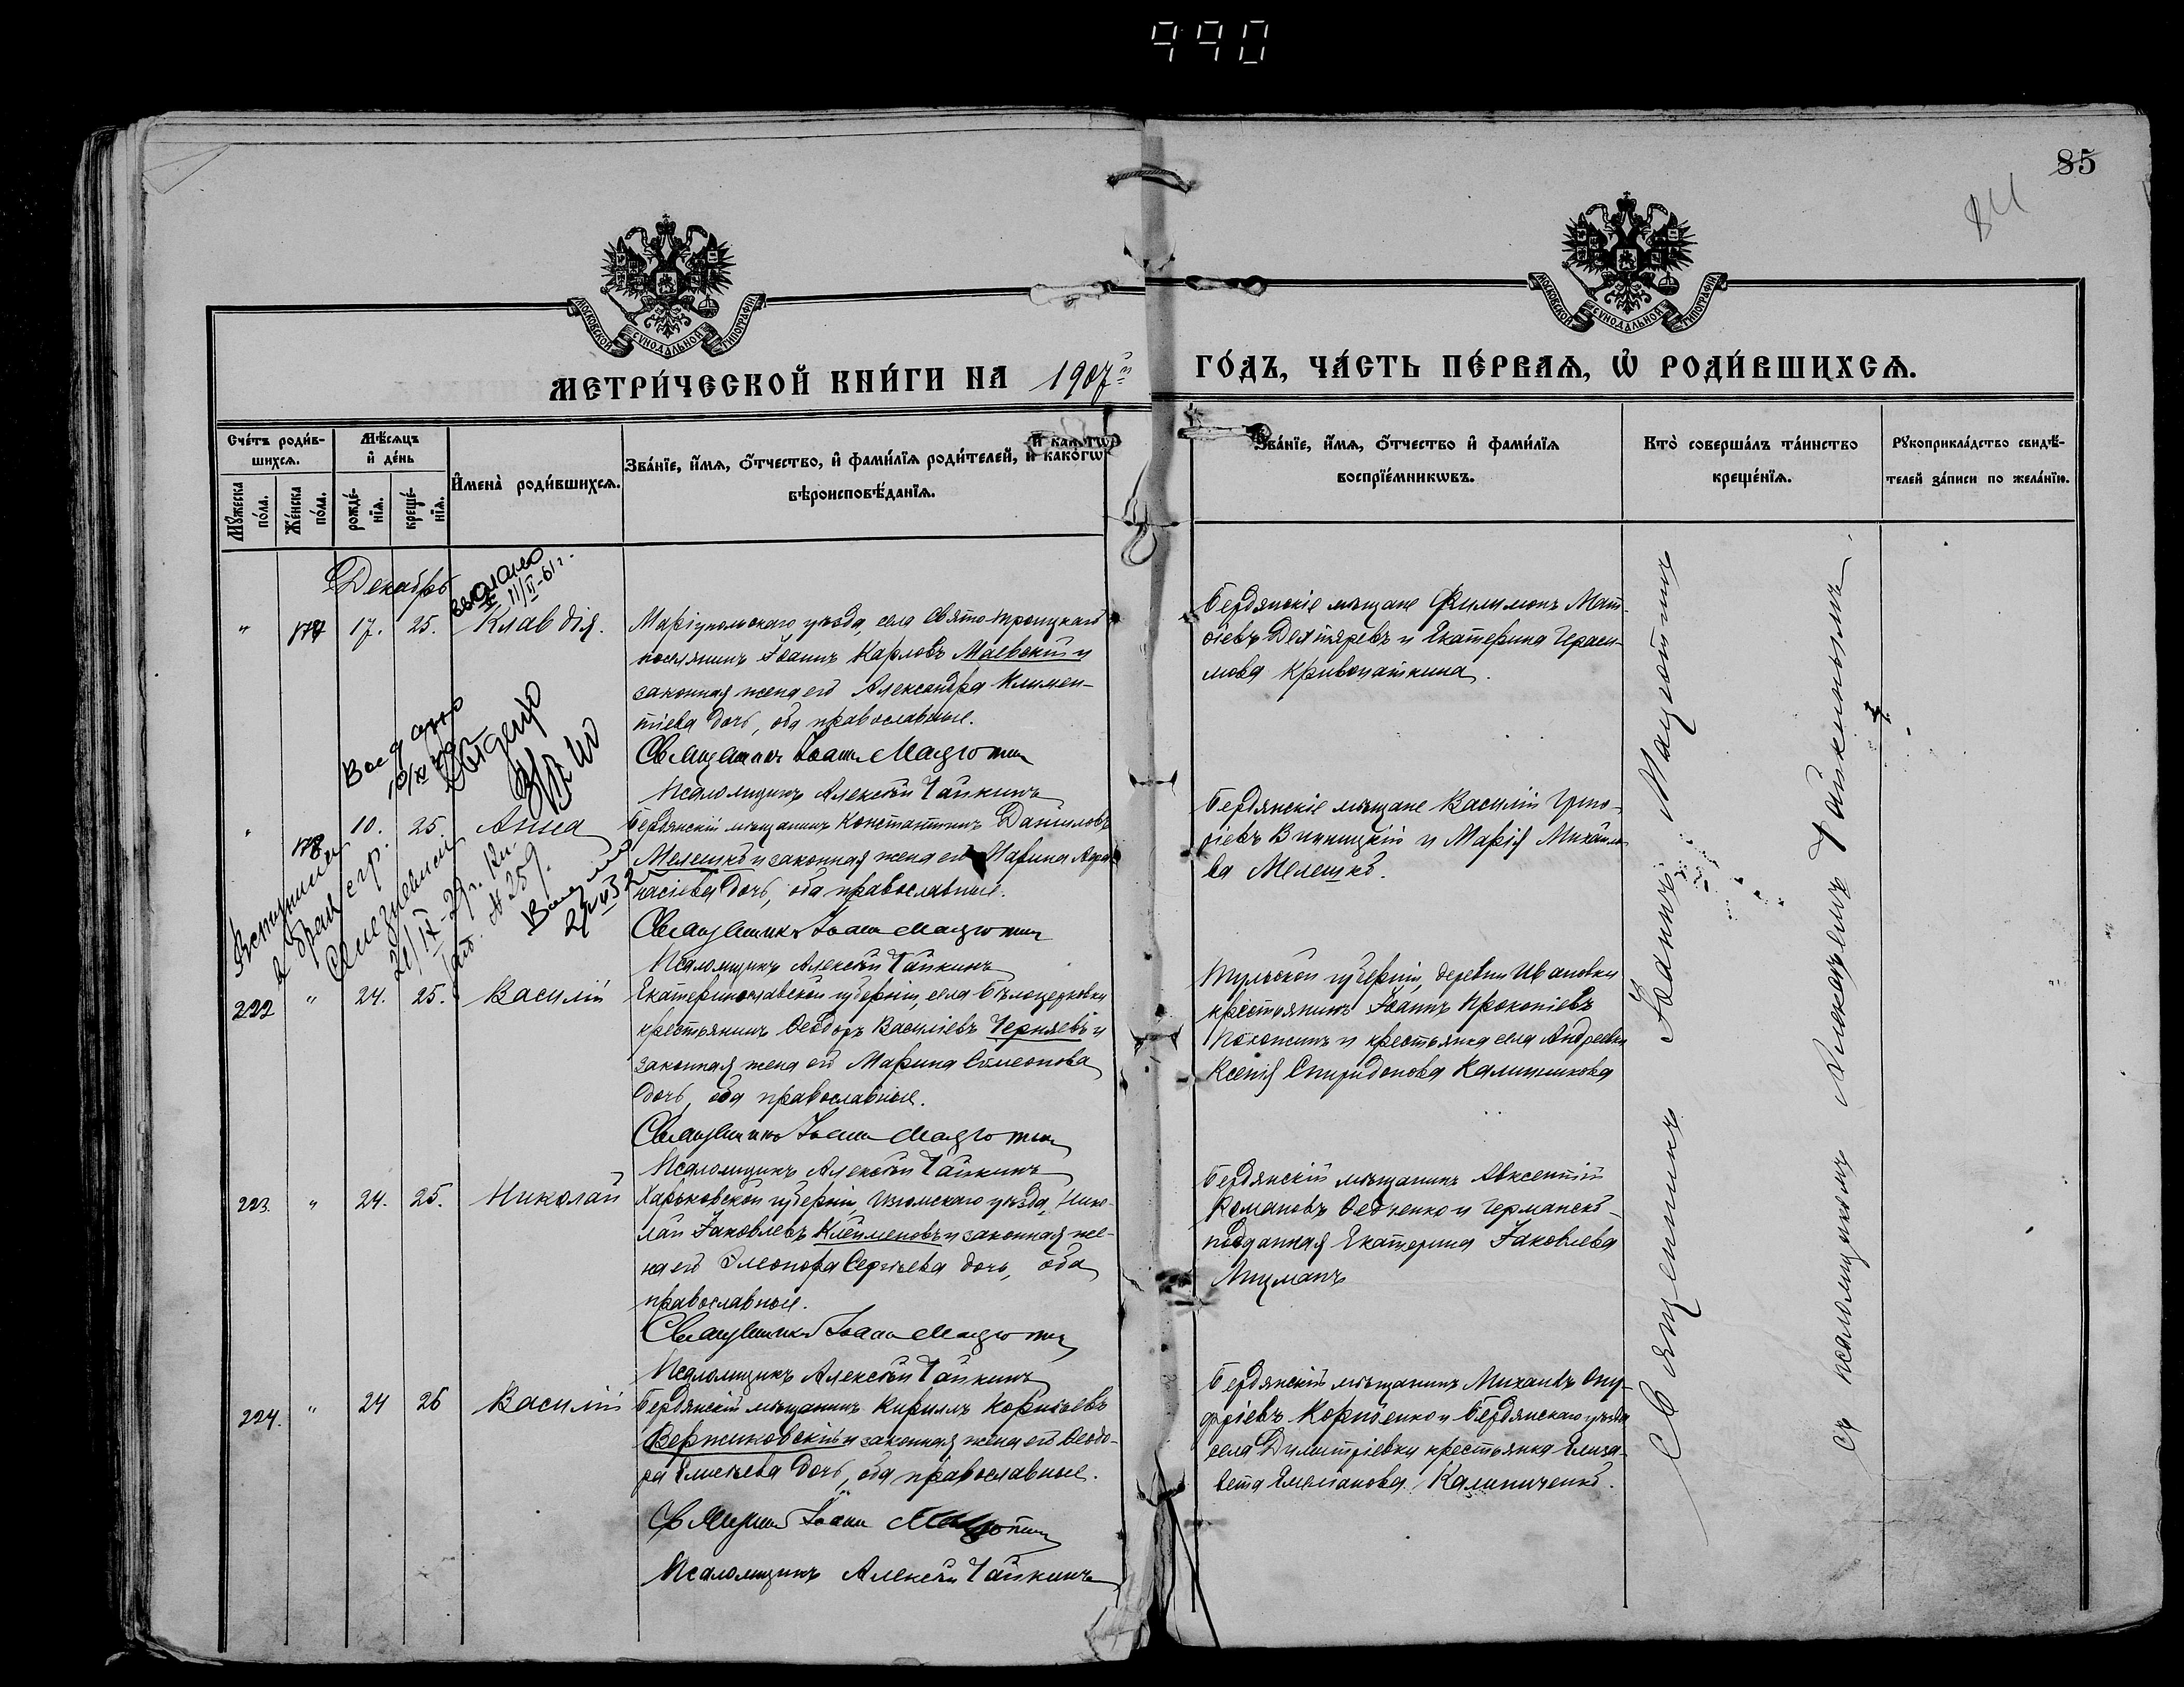 990
85
84
МОСКОВСКОЙ СѴНОДАЛЬНОЙ ТИПОГРАФІИ
МОСКОВСКОЙ СѴНОДАЛЬНОЙ ТИПОГРАФІИ
МЕТРИ́ЧЕСКОЙ КНИ́ГИ НА 1907й ГО́ДЪ, ЧА́СТЬ ПЕ́РВАѦ, Ѡ҆ РОДИ́ВШИХСѦ.
Сче́тъ роди́в-
шихсѧ.
Мꙋ́жеска по́ла.
Же́нска по́ла.
Мѣ́сѧцъ
и҆ де́нь
рожде́-
нїѧ.
креще́-
нїѧ.
И҆мена̀ роди́вшихсѧ.
Зва́нїе, и҆́мѧ, ѻ҆́тчество, и҆ фами́лїѧ роди́телей, и҆ како́гѡ
вѣроисповѣ́данїѧ.
Зва́нїе, и҆́мѧ, ѻ҆́тчество и҆ фами́лїѧ
воспрїе́мникѡвъ.
Кто̀ соверша́лъ та́инство
креще́нїѧ.
Рꙋкоприкла́дство свидѣ́-
телей за́писи по жела́нїю.
Декабрь
" 177 17. 25. Клавдія.
Маріупольскаго уѣзда, села Свято Троицкаго
поселянинъ Іоаннъ Карловъ Маевскій и
законная жена его Александра Климен-
тіева дочь, оба православные.
Священникъ Іоаннъ Мацютин
Псаломщикъ Алексѣй Чайкинъ
Бердянскіе мѣщане Филимонъ Мат-
ѳіевъ Дехтяревъ и Екатерина Гераси-
мова Кривопаткина.
" 178 10. 25. Анна
Бердянскій мѣщанинъ Константинъ Даніиловъ
Мелешко и законная жена его Марина Аѳа-
насіева дочь, оба православные.
Священникъ Іоаннъ Мацютин
Псаломщикъ Алексѣй Чайкинъ
Бердянскіе мѣщане Василій Григо-
ріевъ Винницкій и Марія Михайло-
ва Мелешко.
Вступила
в брак с гр.
21/IX-29г.
№ 259.
222 " 24. 25. Василій
Екатеринославской губерніи, села Бѣлоцерковки
крестьянинъ Ѳеодоръ Василіевъ Черняевъ и
законная жена его Марина Симеонова
дочь, оба православные.
Священникъ Іоаннъ Мацютин
Псаломщикъ Алексѣй Чайкинъ
Тульской губерніи, деревни Ивановки
крестьянинъ Іоаннъ Прокопіевъ
и крестьянка села Андреевки
Ксенія Спиридонова Калишникова
223. " 24. 25. Николай
Харьковской губерніи, Изюмскаго уѣзда, Нико-
лай Іаковлевъ Клейменовъ и законная же-
на его Элеонора Сергіева дочь, оба
православные.
Священникъ Іоаннъ Мацютин
Псаломщикъ Алексѣй Чайкинъ
Бердянскій мѣщанинъ Авксентій
Романовъ Ѳедченко и Германско-
подданная Екатерина Іаковлева
Лицманъ
224. " 24 26 Василій
Бердянскій мѣщанинъ Кириллъ Корніевъ
Вержиковскій и законная жена его Ѳеодо-
ра Елисѣева дочь, оба православные.
Священникъ Іоаннъ Мацютин
Псаломщикъ Алексѣй Чайкинъ
Бердянскій мѣщанинъ Михаилъ Ону-
фріевъ Корніенко и Бердянскаго уѣзда
села Димитріевки крестьянка Елиса-
вета Емеліанова Калиниченко.
Священникъ Іоаннъ Мацютинъ
съ псаломщикомъ Алексѣемъ Чайкинымъ.